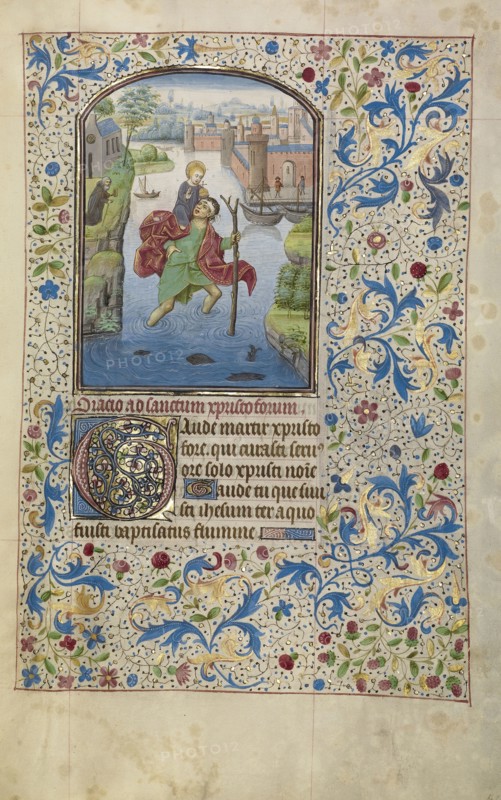 Oratio ad sanctum xpristoforum
Gaude martir xpristo
fore. qui curasti serui
ore solo xpristi noie
Gaude tu que sun
sti ihesum ter a quo
fuisti baptisatus flumine
PHOTO12
PHOTO12
PHOTO12